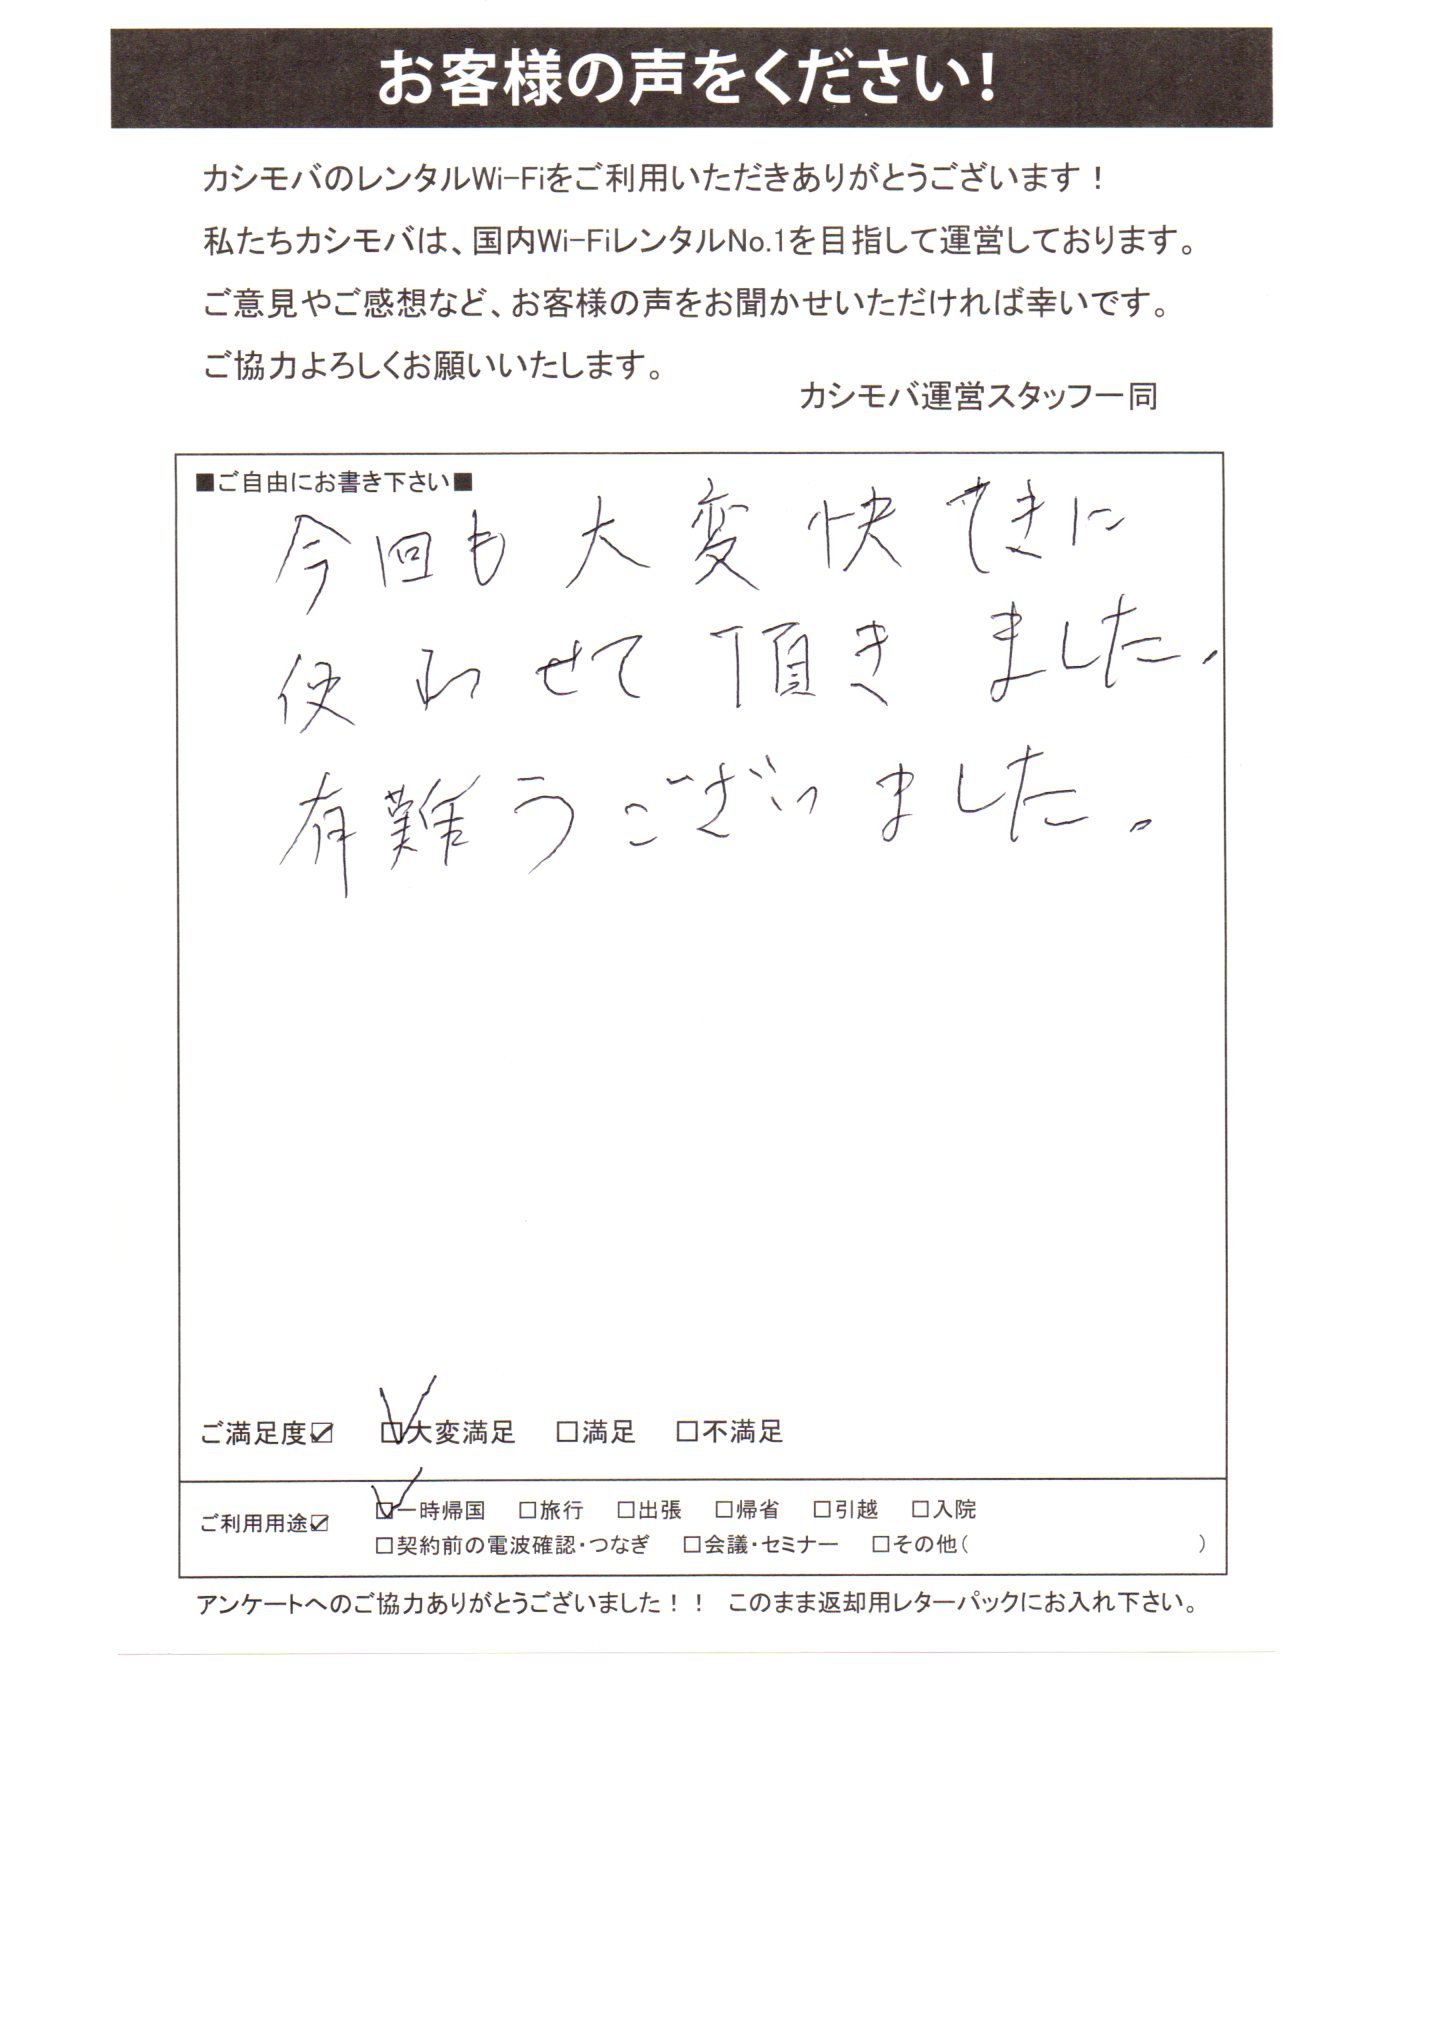 お客様の声をください!
カシモバのレンタルWi-Fiをご利用いただきありがとうございます！
私たちカシモバは、国内Wi-FiレンタルNo.1を目指して運営しております。
ご意見やご感想など、お客様の声をお聞かせいただければ幸いです。
ご協力よろしくお願いいたします。
カシモバ運営スタッフ一同
■ご自由にお書き下さい■
今回も大変快てきに
使わせて頂きました。
有難うございました。
ご満足度☑ ☑大変満足 □満足 □不満足
ご利用用途☑ ☑一時帰国 □旅行 □出張 □帰省 □引越 □入院
□契約前の電波確認・つなぎ □会議・セミナー □その他( )
アンケートへのご協力ありがとうございました！！ このまま返却用レターパックにお入れ下さい。